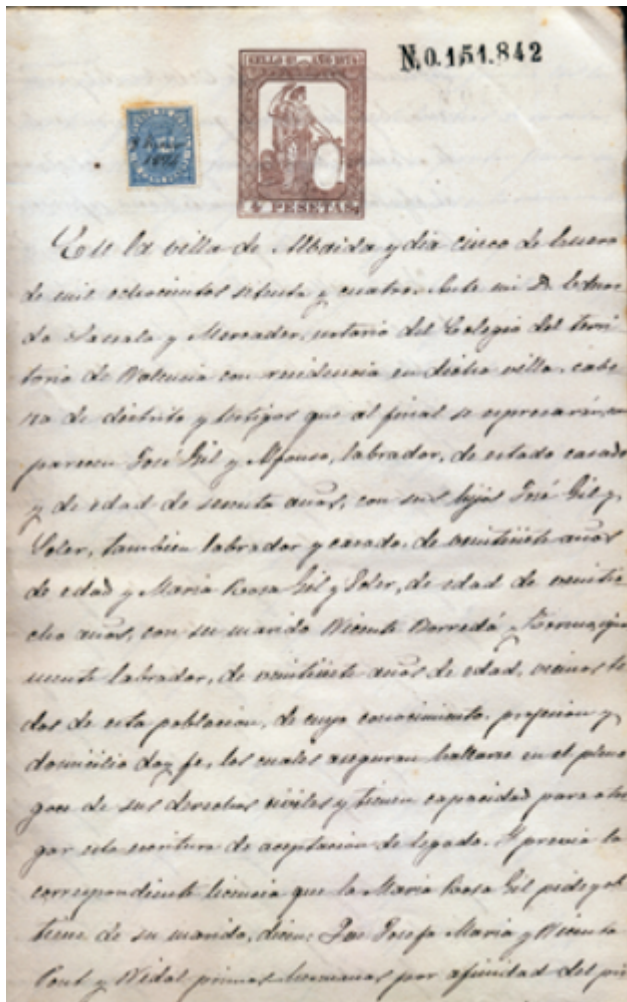 SELLO 8º AÑO 1874
N. 0.151.842
1874
4 PESETAS
En la villa de Albaida y dia cinco de Enero
de mil ochocientos setenta y cuatro. Ante mi D. Eduar
do y Mercader, notario del Colegio del terri
torio de Valencia con residencia en dicha villa, cabe
za de distrito y testigos que al final se espresarán, com
parecen José Gil y Alfonso, labrador, de estado casado
y de edad de sesenta años, con sus hijos José Gil y
Soler, tambien labrador y casado, de veintisiete años
de edad y Maria Rosa Gil y Soler, de edad de veinti
ocho años, con su marido Vicente Borredá y igual
mente labrador, de veintisiete años de edad, vecinos to
dos de esta poblacion, de cuyo conocimiento, profesion y
domicilio doy fe, los cuales aseguran hallarse en el pleno
goce de sus derechos civiles y tienen capacidad para otor
gar esta escritura de aceptacion de legado. Y previa la
correspondiente licencia que la Maria Rosa Gil pide y ob
tiene de su marido, dicen: Que Josefa Maria y Vicenta
Pont y Vidal primas hermanas por afinidad del pri